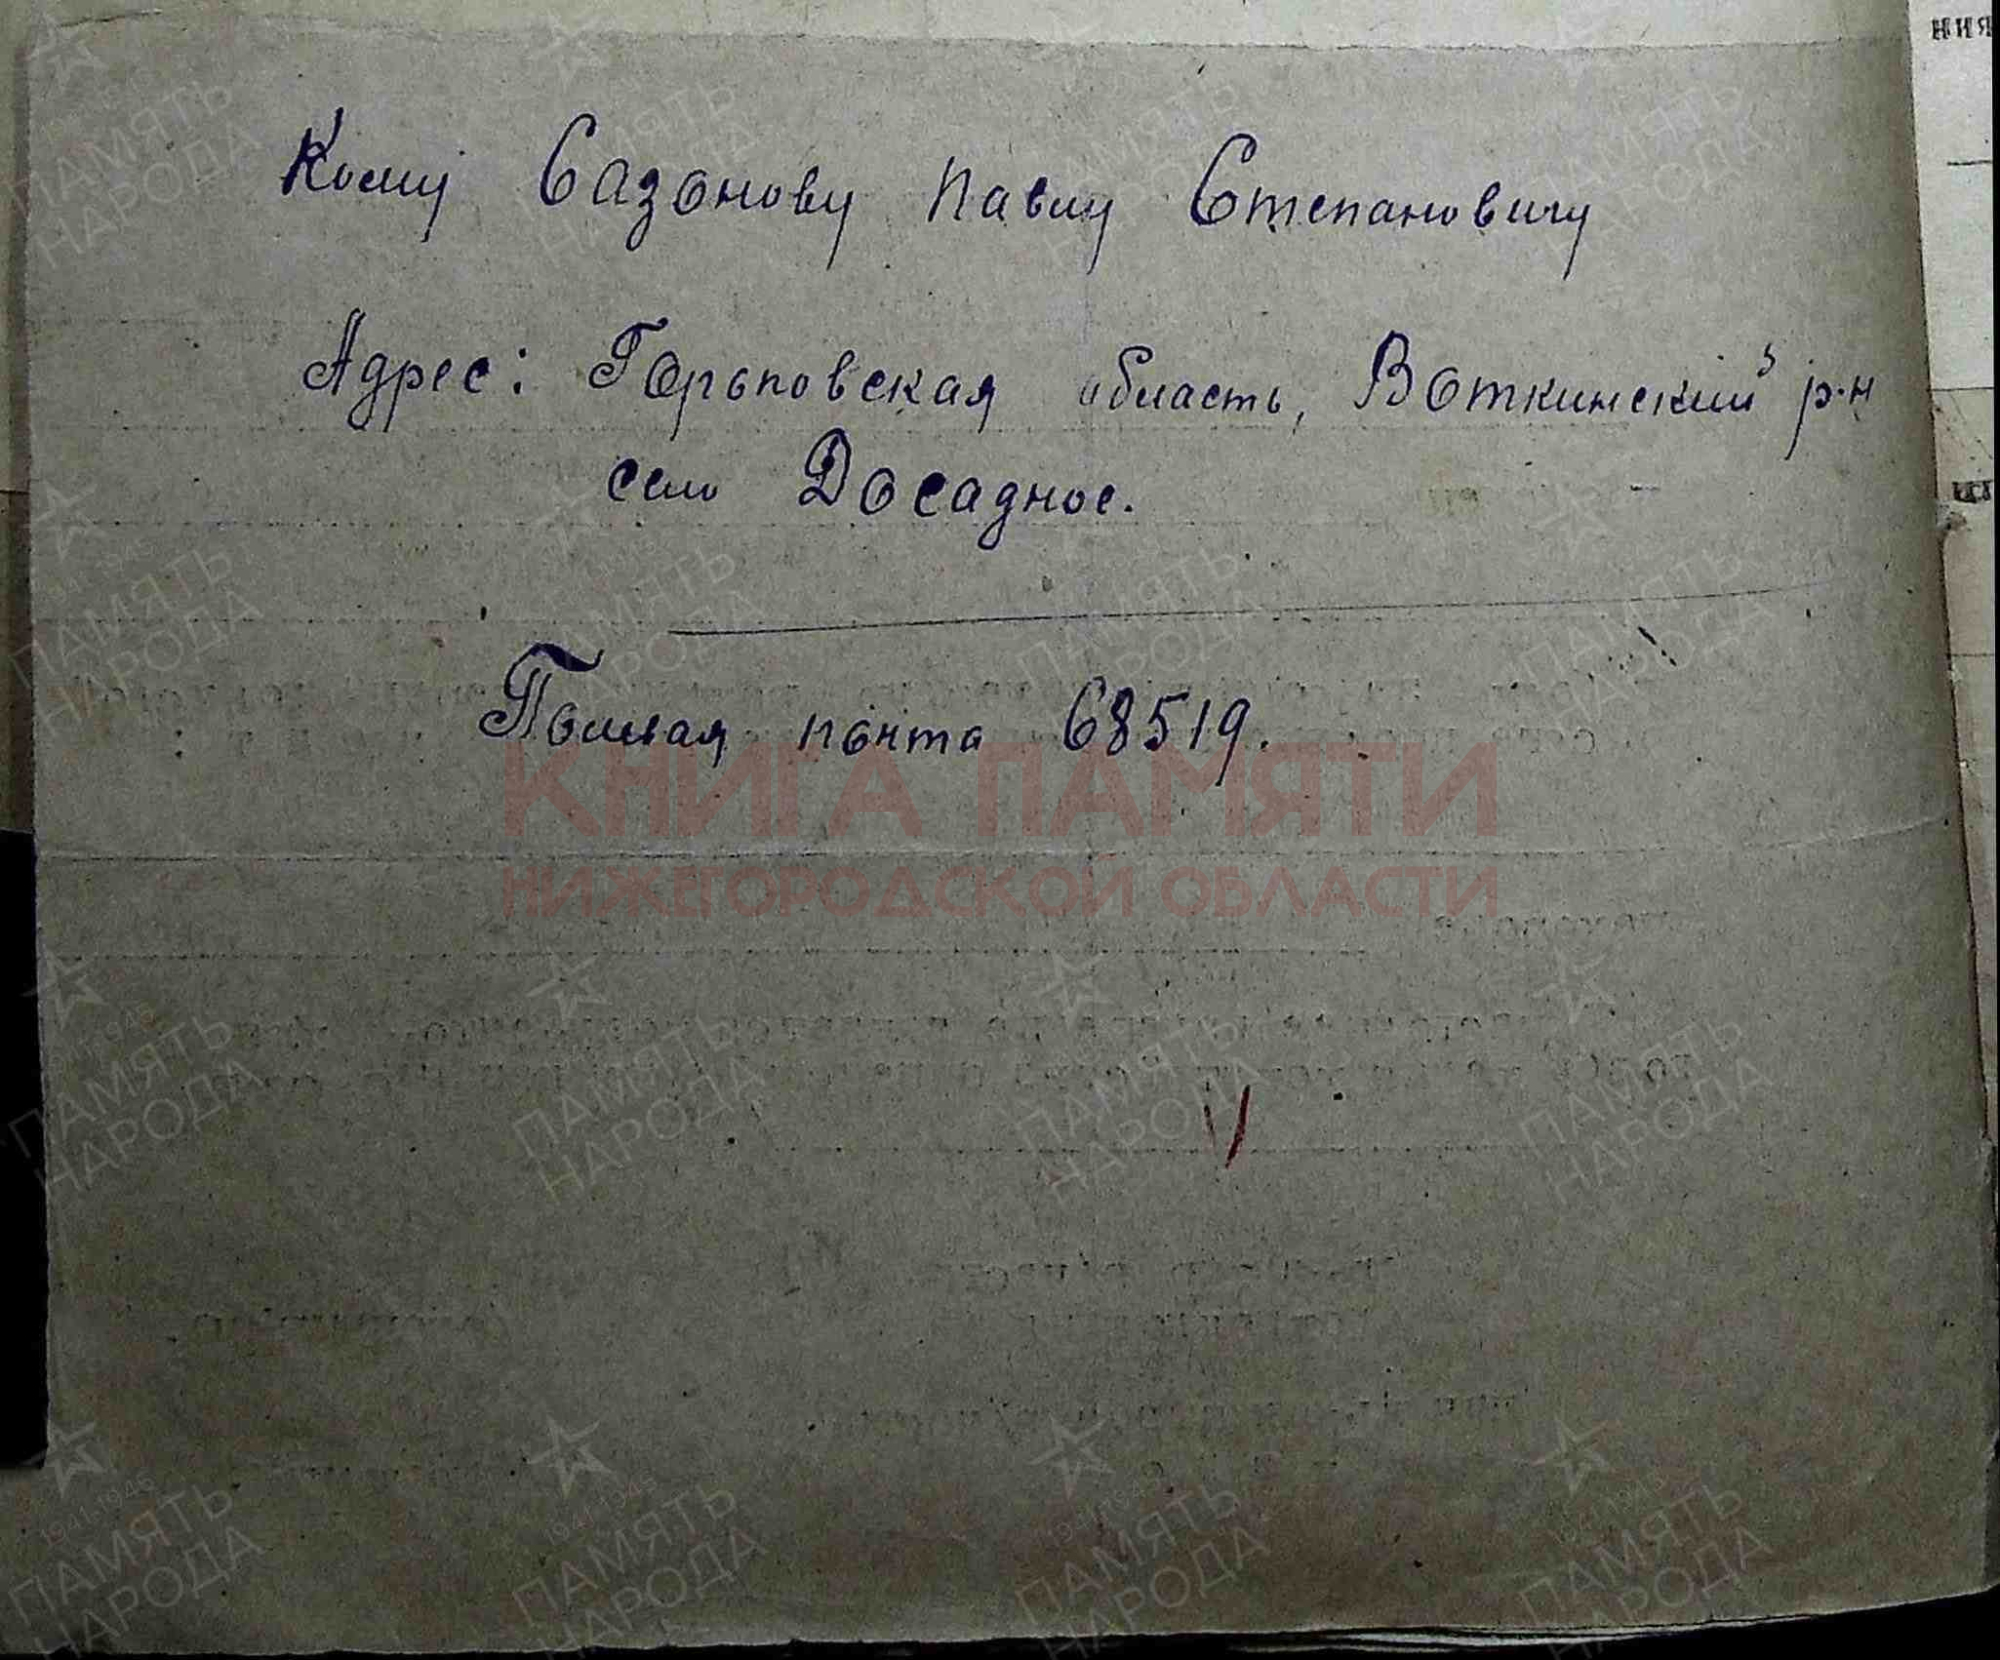 Кому Сазонову Павлу Степановичу
Адрес: Горьковская область, Воткинский р-н
село Досадное.
Полевая почта 68519.
КНИГА ПАМЯТИ
НИЖЕГОРОДСКОЙ ОБЛАСТИ
ПАМЯТЬ
НАРОДА
1941-1945
ния